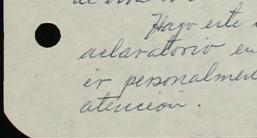 Hago este
aclaratorio en
ir personalmen
atencion.